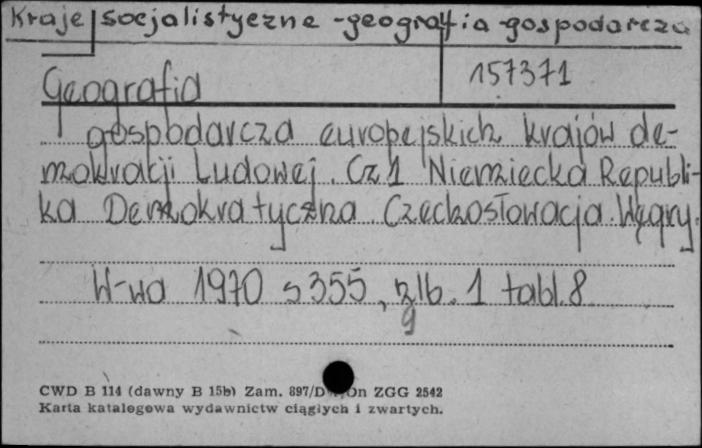 Kraje socjalistyczne - geografia gospodarcza
Geografia 157371
gospodarcza europejskich krajów de-
mokracji Ludowej. Cz 1 Niemiecka Republi-
ka Demokratyczna. Czechosłowacja. Węgry.
W-wa 1970 s 355, lb. 1 tabl. 8
CWD B 114 (dawny B 15b) Zam. 897/D On ZGG 2542
Karta katalogowa wydawnictw ciągłych i zwartych.